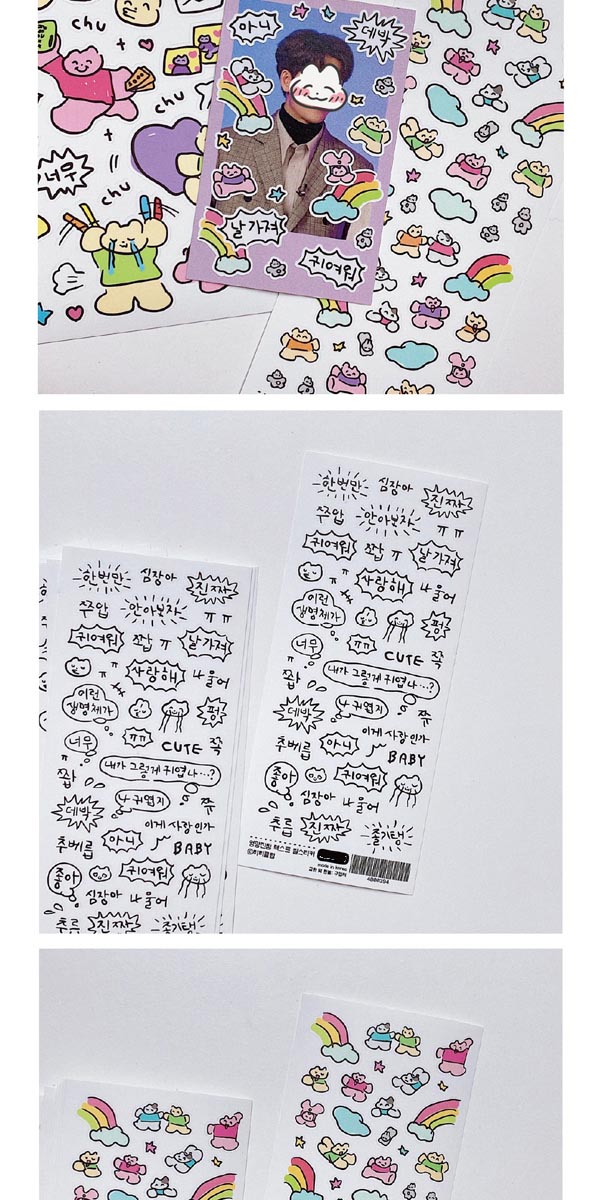 chu
chu
chu
너무
아니
대박
날 가져
귀여워
한번만 심장아 진짜
쭈압 안아보자 ㅠㅠ
귀여워 쫩 ㅠ 날가져
ㅠ 사랑해 나 울어
이런 생명체가 펑
너무 ㅠㅠ CUTE 쪽
쫩 내가 그렇게 귀엽나…?
대박 나 귀엽지 쮸
추베릅 아니 이게 사랑인가
BABY
좋아 귀여워
심장아 나 울어
추릅 진짜 줄기탱
한번만 심장아 진짜
쭈압 안아보자 ㅠㅠ
귀여워 쫩 ㅠ 날가져
ㅠ 사랑해 나 울어
이런 생명체가 펑
너무 ㅠㅠ CUTE 쪽
쫩 내가 그렇게 귀엽나…?
대박 나 귀엽지 쮸
추베릅 아니 이게 사랑인가
BABY
좋아 귀여워
심장아 나 울어
추릅 진짜 줄기탱
made in korea